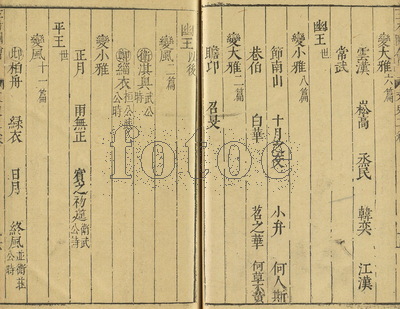 變大雅六篇
雲漢 崧高 烝民 韓奕 江漢
常武
幽王世
變小雅八篇
節南山 十月之交 小弁 何人斯
巷伯 白華 苕之華 何草不黃
變大雅二篇
瞻卬 召旻
幽王以後
變風二篇
衛淇奧武公時
鄭緇衣
變小雅
正月 雨無正 賓之初筵衛武公時
平王世
變風十一篇
邶柏舟 綠衣 日月 終風並衛莊公時
fotoe